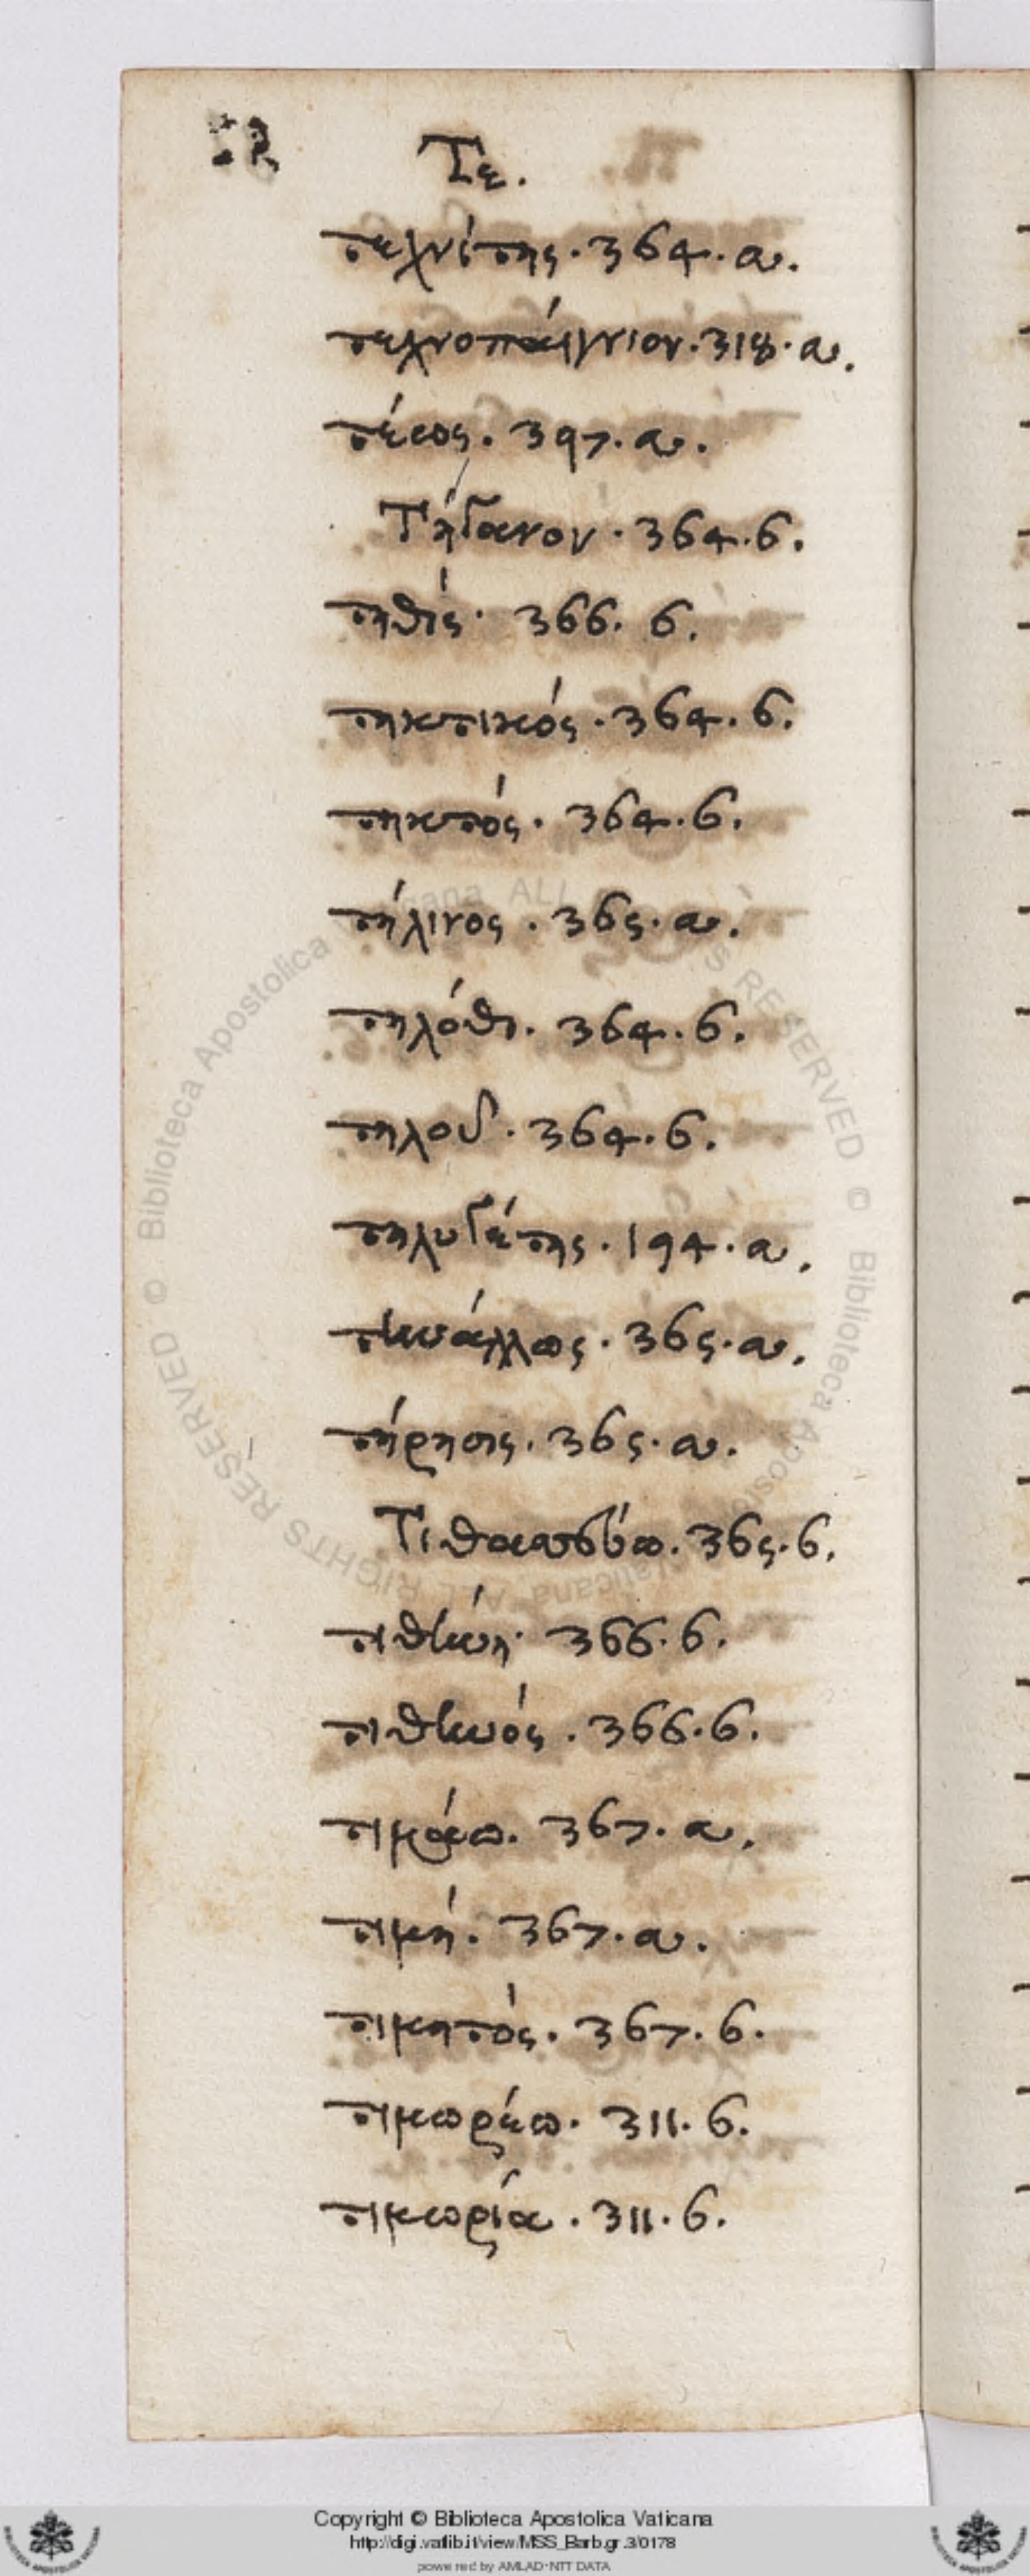 Τε.
τεχνίτης. 364. α.
τεχνοπαίγνιον. 318. α.
τέως. 397. α.
Τήγανον. 364. β.
τηθίς. 366. β.
τηκτικός. 364. β.
τηκτός. 364. β.
τήλινος. 365. α.
τηλόθι. 364. β.
τηλοῦ. 364. β.
τηλυγέτης. 194. α.
τηνάλλως. 365. α.
τήρησις. 365. α.
Τιθασσεύω. 365. β.
τιθήνη. 366. β.
τιθηνός. 366. β.
τιμάω. 367. α.
τιμή. 367. α.
τιμητός. 367. β.
τιμωρέω. 311. β.
τιμωρία. 311. β.
Copyright © Biblioteca Apostolica Vaticana
http://digi.vatlib.it/view/MSS_Barb.gr.3/0178
powered by AMLAD-NTT DATA